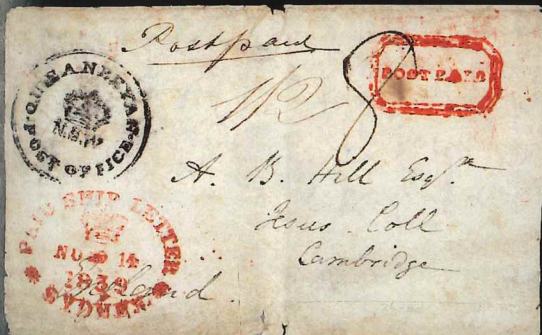 Postpaid
POST PAID
QUEANBEYAN
N.S.W
POST OFFICE
1/2 8
A. B. Hill Esqre.
Jesus Coll
Cambridge
England.
PAID SHIP LETTER
NO 14
1839
SYDNEY